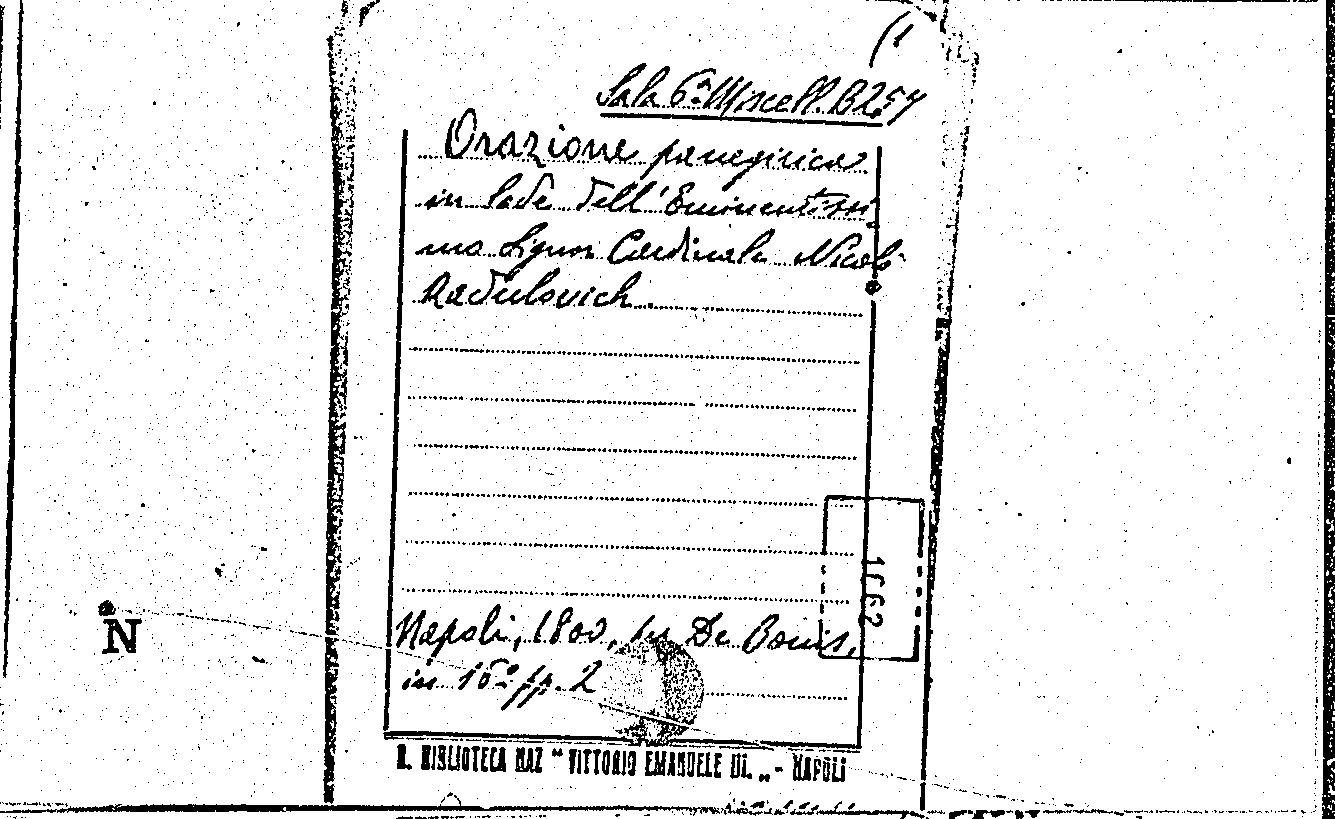 (1
Sala 6ª Miscell. B257
Orazione panegirica
in lode dell'Eminentissi
mo Signor Cardinale Nicolò
Radulovich.
1662
Napoli, 1800, De Bonis,
in 16º pp. 2
N
R. BIBLIOTECA NAZ "VITTORIO EMANUELE III." - NAPOLI